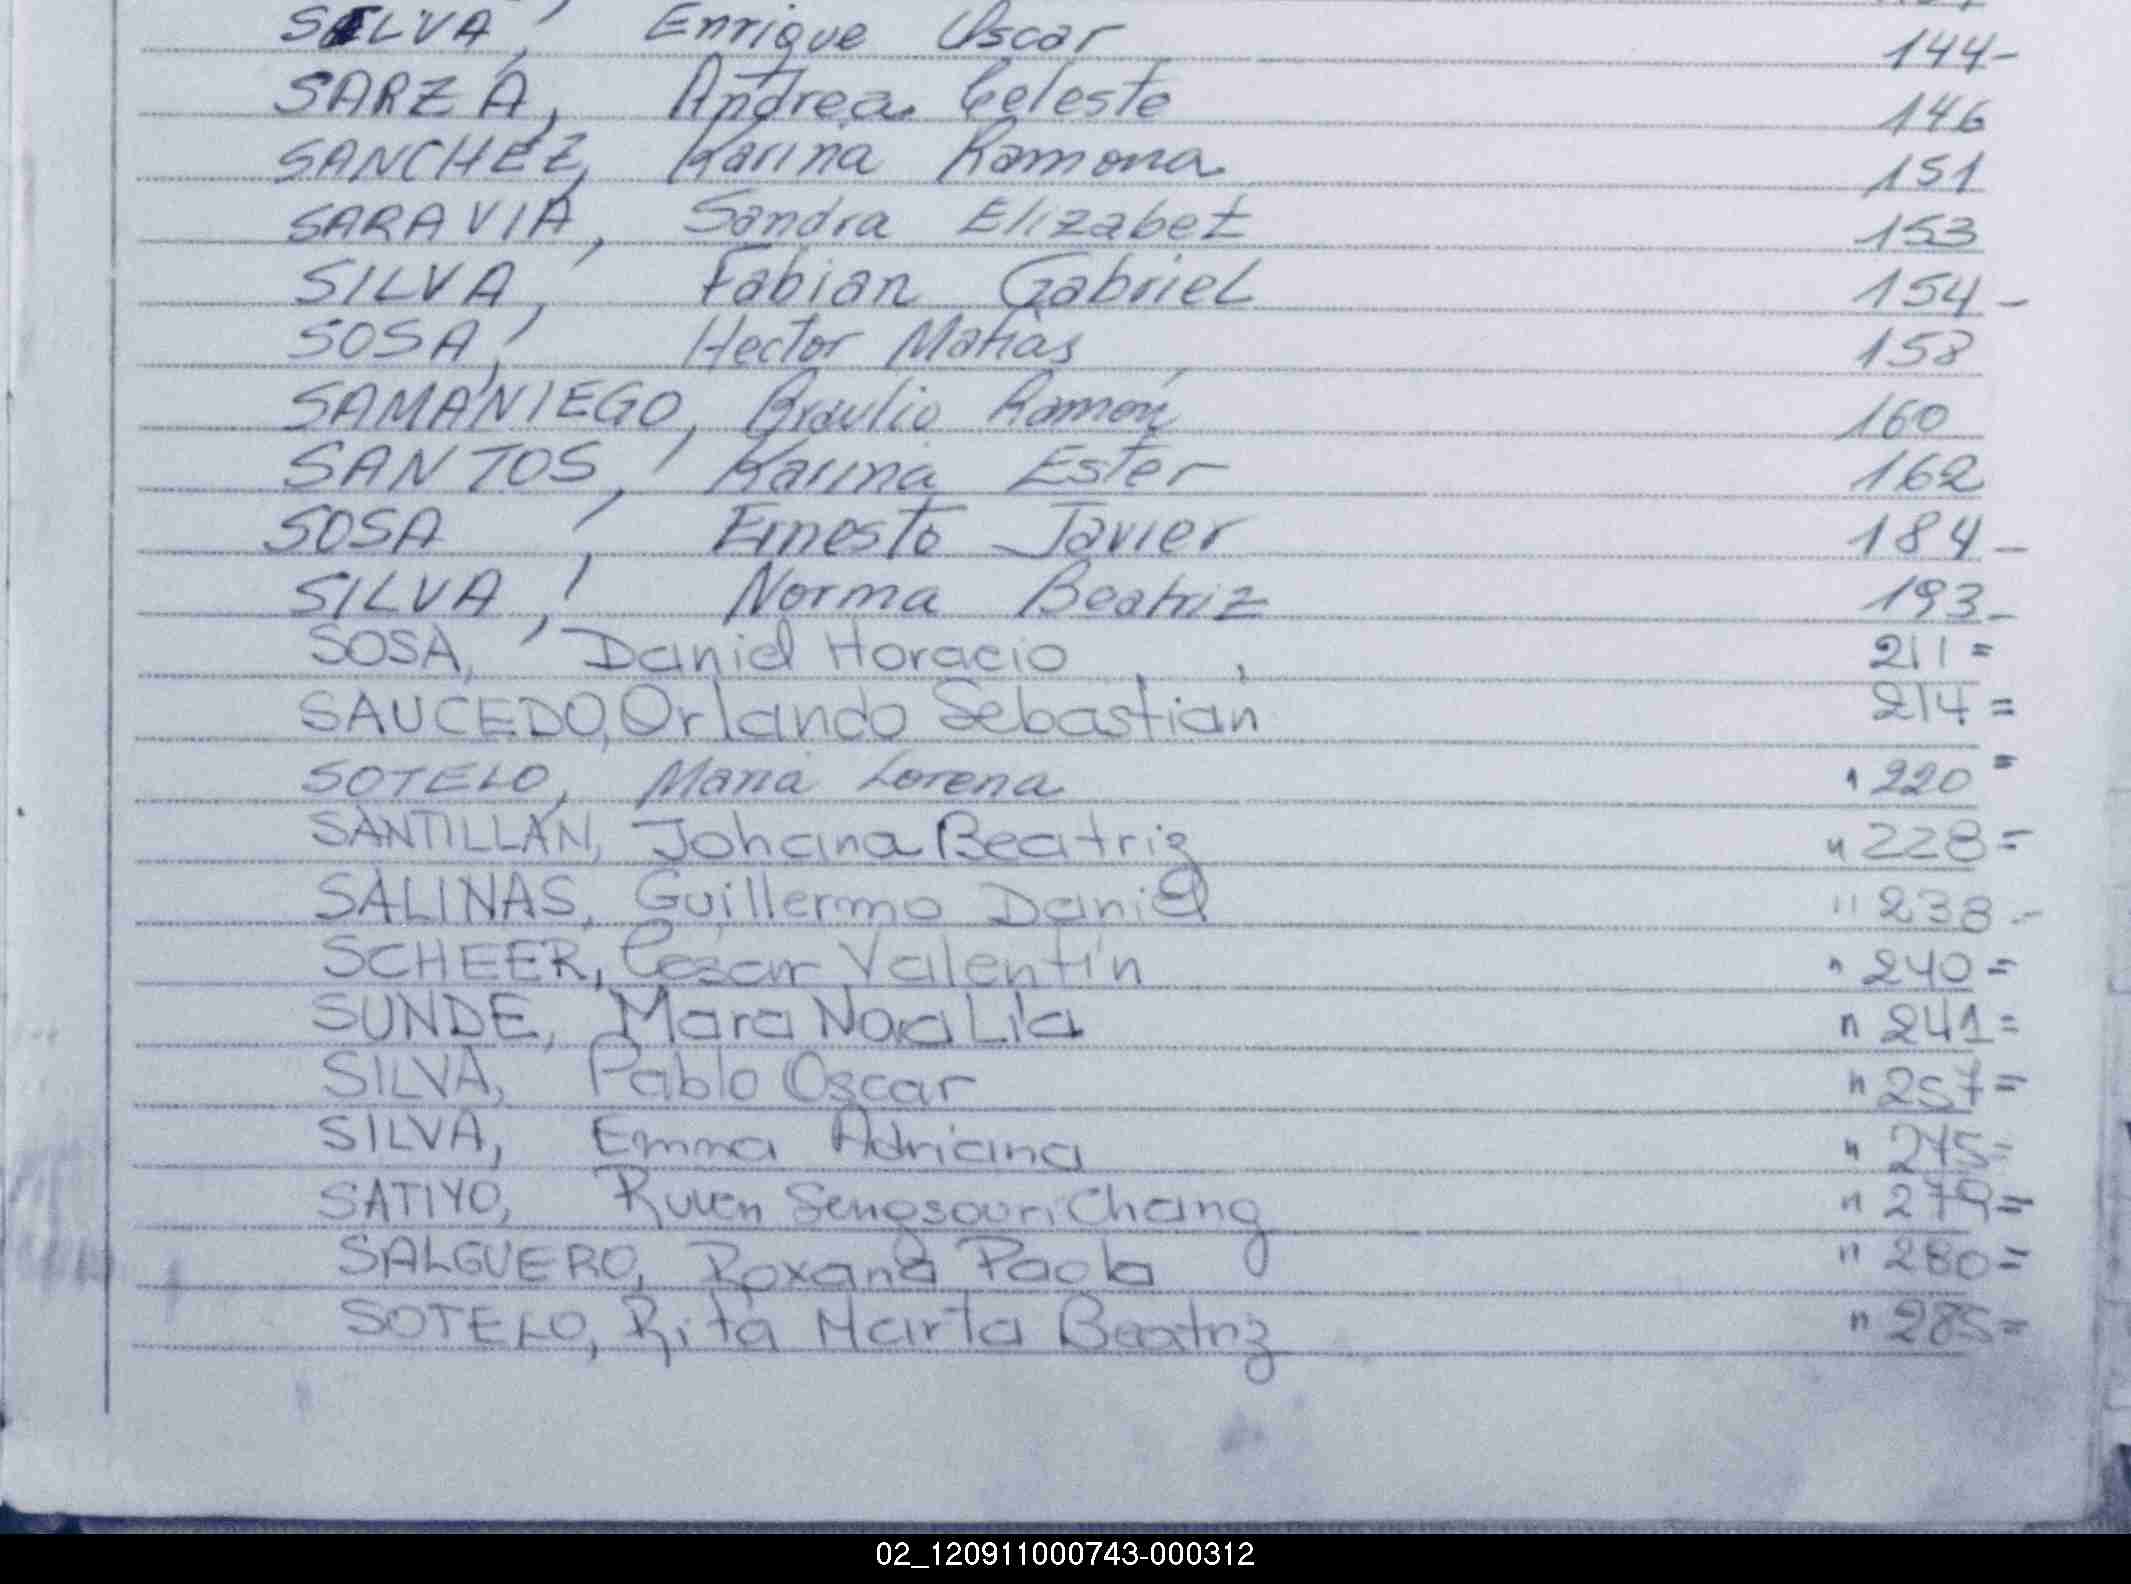 SILVA, Enrique Oscar 144-
SARZA, Andrea Celeste 146
SANCHEZ, Karina Ramona 151
SARAVIA, Sandra Elizabet 153
SILVA, Fabian Gabriel 154-
SOSA, Hector Matías 158
SAMANIEGO, Braulio Ramón 160
SANTOS, Karina Ester 162
SOSA, Ernesto Javier 184-
SILVA, Norma Beatriz 193-
SOSA, Daniel Horacio 211=
SAUCEDO, Orlando Sebastián 214=
SOTELO, María Lorena " 220=
SANTILLÁN, Johana Beatriz " 228=
SALINAS, Guillermo Daniel " 238-
SCHEER, César Valentín " 240=
SUNDE, Mara Noa Lía " 241=
SILVA, Pablo Oscar " 257=
SILVA, Emma Adriana " 275=
SATIYO, Chang " 279=
SALGUERO, Roxana Paola " 280=
SOTELO, Rita Marta Beatriz " 285=
02_120911000743-000312